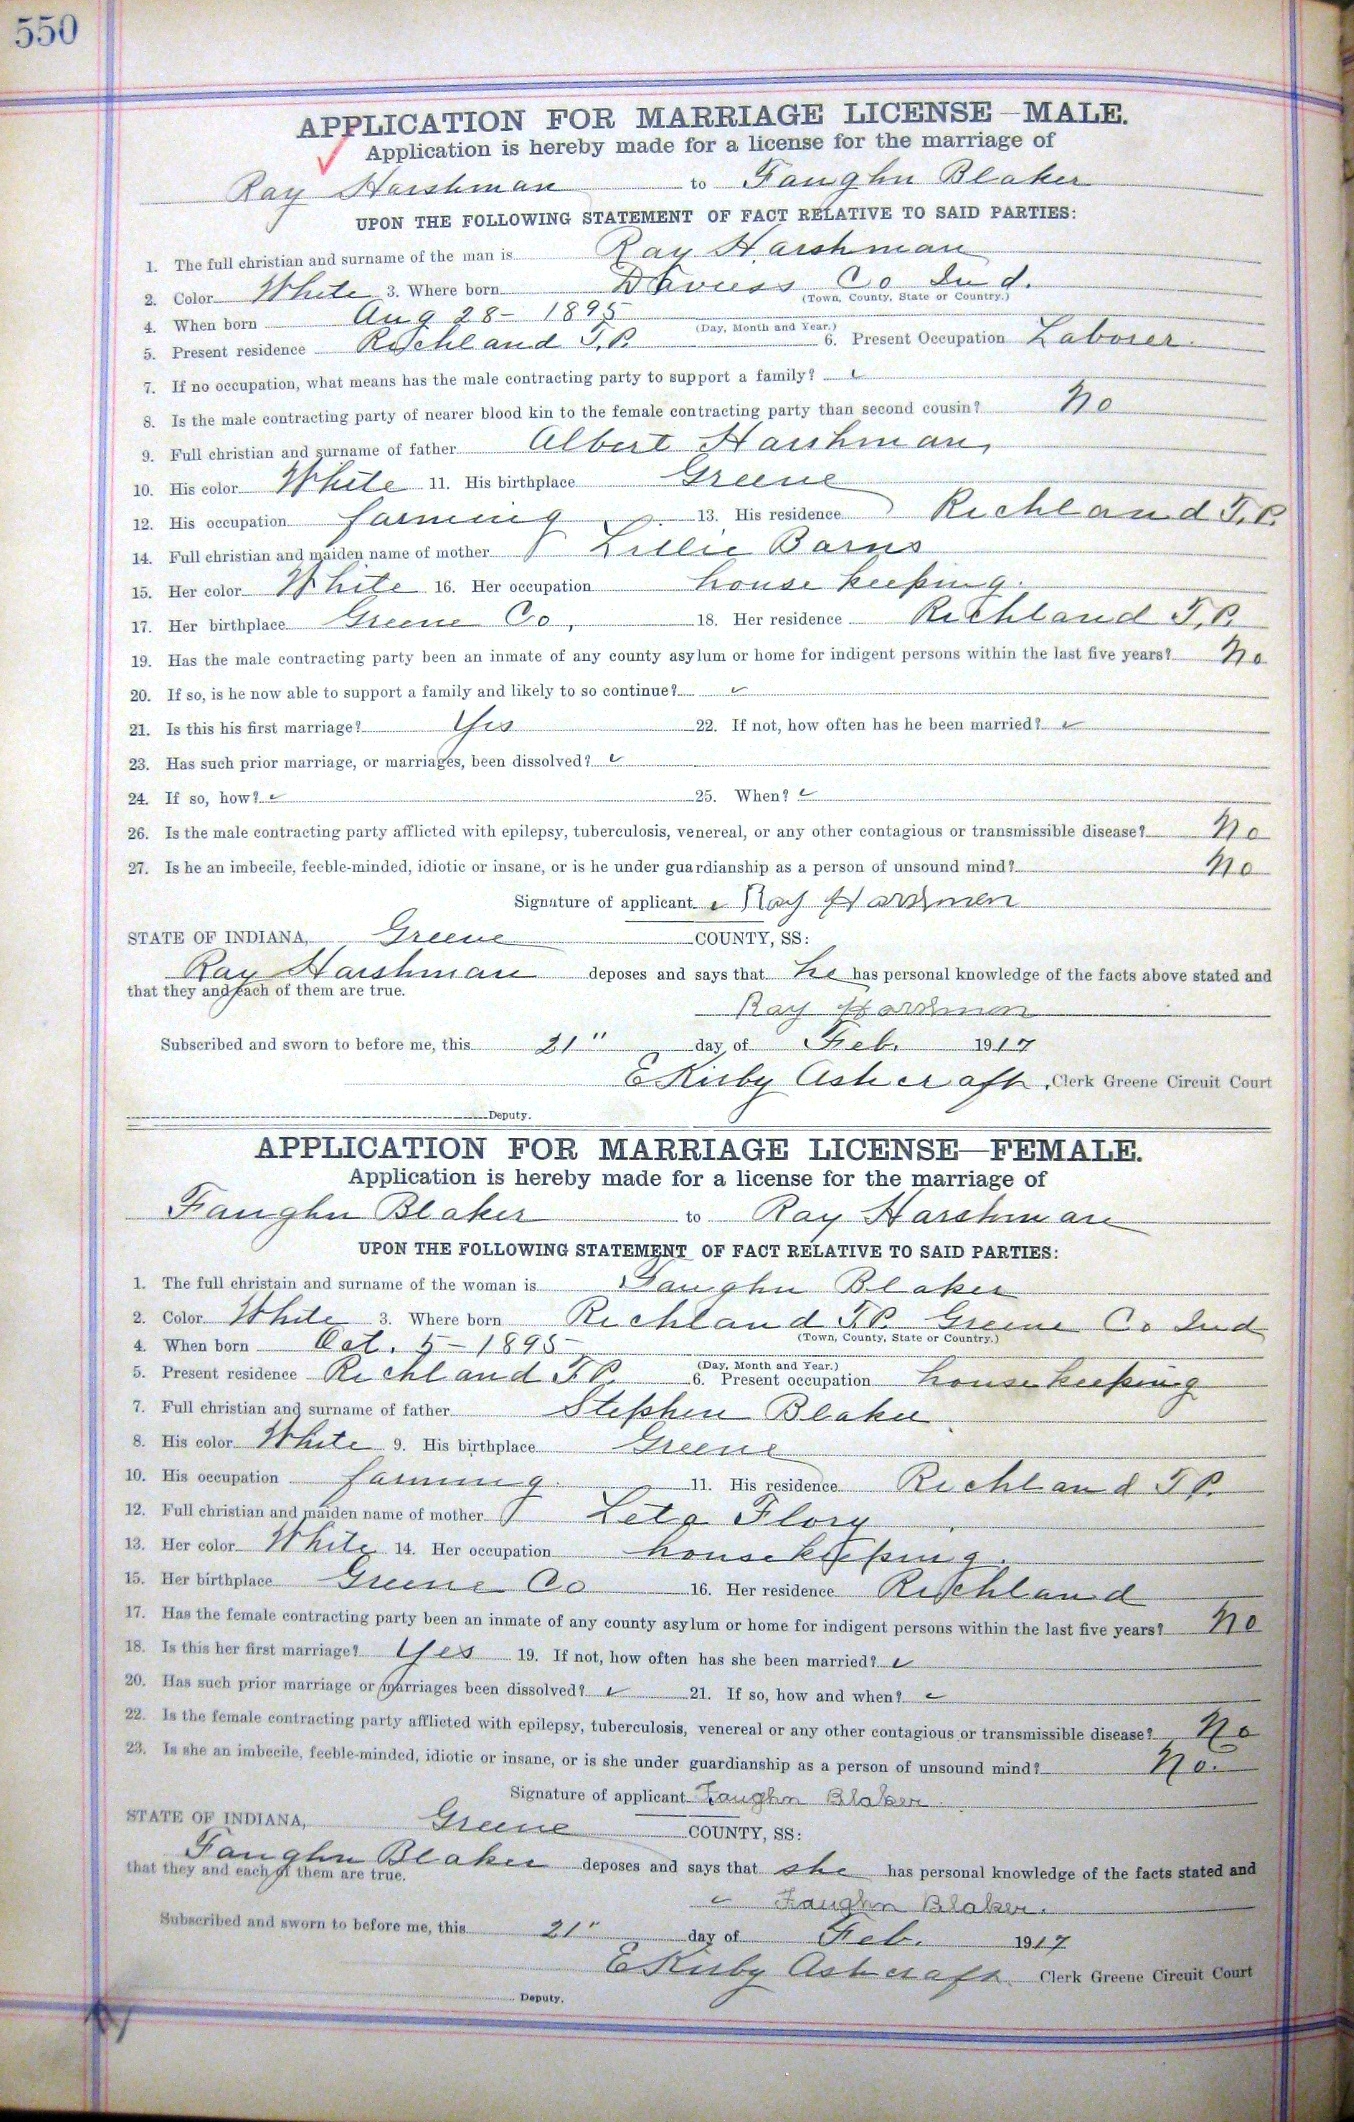 550
APPLICATION FOR MARRIAGE LICENSE—MALE.
Application is hereby made for a license for the marriage of
Ray Harshman to Faughn Blaker
UPON THE FOLLOWING STATEMENT OF FACT RELATIVE TO SAID PARTIES:
1. The full christian and surname of the man is Ray Harshman
2. Color White 3. Where born Daviess Co Ind.
(Town, County, State or Country.)
4. When born Aug 28- 1895
(Day, Month and Year.)
5. Present residence Richland T.P. 6. Present Occupation Laborer.
7. If no occupation, what means has the male contracting party to support a family? ✓
8. Is the male contracting party of nearer blood kin to the female contracting party than second cousin? No
9. Full christian and surname of father Albert Harshman,
10. His color White 11. His birthplace Greene
12. His occupation farming 13. His residence Richland T.P.
14. Full christian and maiden name of mother Lillie Barns
15. Her color White 16. Her occupation house keeping.
17. Her birthplace Greene Co, 18. Her residence Richland T.P.
19. Has the male contracting party been an inmate of any county asylum or home for indigent persons within the last five years? No
20. If so, is he now able to support a family and likely to so continue? ✓
21. Is this his first marriage? Yes 22. If not, how often has he been married? ✓
23. Has such prior marriage, or marriages, been dissolved? ✓
24. If so, how? ✓ 25. When? ✓
26. Is the male contracting party afflicted with epilepsy, tuberculosis, venereal, or any other contagious or transmissible disease? No
27. Is he an imbecile, feeble-minded, idiotic or insane, or is he under guardianship as a person of unsound mind? No
Signature of applicant Ray Harshman
STATE OF INDIANA, Greene COUNTY, SS:
Ray Harshman deposes and says that he has personal knowledge of the facts above stated and
that they and each of them are true.
Ray Harshman
Subscribed and sworn to before me, this 21" day of Feb. 1917
E Kirby Ashcraft, Clerk Greene Circuit Court
Deputy.
APPLICATION FOR MARRIAGE LICENSE—FEMALE.
Application is hereby made for a license for the marriage of
Faughn Blaker to Ray Harshman
UPON THE FOLLOWING STATEMENT OF FACT RELATIVE TO SAID PARTIES:
1. The full christain and surname of the woman is Faughn Blaker
2. Color White 3. Where born Richland T.P. Greene Co Ind
(Town, County, State or Country.)
4. When born Oct. 5-1895
(Day, Month and Year.)
5. Present residence Richland T.P. 6. Present occupation house keeping
7. Full christian and surname of father Stephen Blaker
8. His color White 9. His birthplace Greene
10. His occupation farming. 11. His residence Richland T P.
12. Full christian and maiden name of mother Leta Flory
13. Her color White 14. Her occupation housekeeping.
15. Her birthplace Greene Co 16. Her residence Richland
17. Has the female contracting party been an inmate of any county asylum or home for indigent persons within the last five years? No
18. Is this her first marriage? Yes 19. If not, how often has she been married? ✓
20. Has such prior marriage or marriages been dissolved? ✓ 21. If so, how and when? ✓
22. Is the female contracting party afflicted with epilepsy, tuberculosis, venereal or any other contagious or transmissible disease? No
23. Is she an imbecile, feeble-minded, idiotic or insane, or is she under guardianship as a person of unsound mind? No.
Signature of applicant Faughn Blaker
STATE OF INDIANA, Greene COUNTY, SS:
Faughn Blaker deposes and says that she has personal knowledge of the facts stated and
that they and each of them are true.
✓ Faughn Blaker.
Subscribed and sworn to before me, this 21" day of Feb. 1917
E Kirby Ashcraft. Clerk Greene Circuit Court
Deputy.